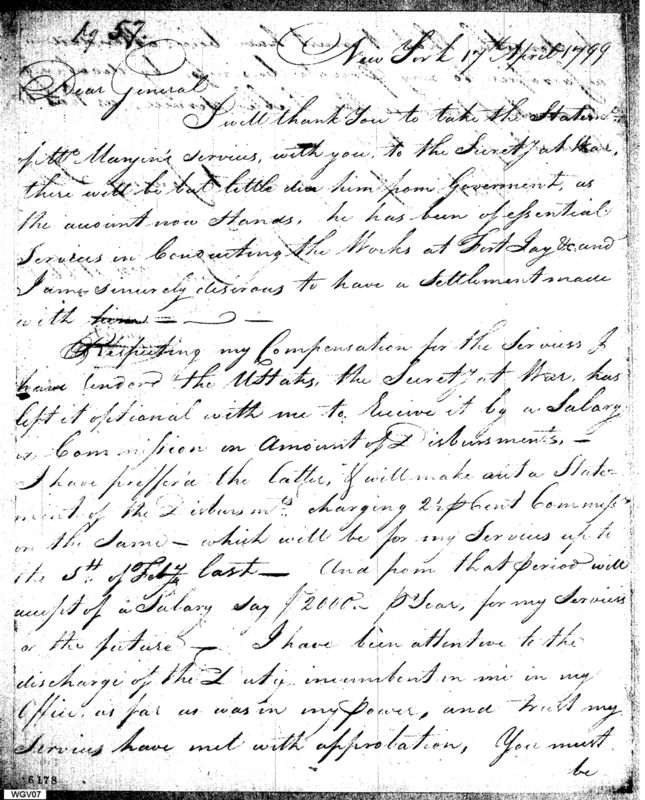 pg 57.
New York 17th April 1799
Dear General
I will thank You to take the Statemt
of Mr Mangin's services, with you, to the Secrety at War,
there will be but little due him from Goverment, as
the amount now Stands, he has been of essential
Services in Conducting the Works at Fort Jay &c and
I am sincerely desirous to have a Settlement made
with him —
Respecting my Compensation for the Services I
have rendered the UStates, the Secrety at War, has
left it optional with me to Receive it by a Salary
or Commission on Amount of Disbursments, —
I have preffer'd the latter, & will make out a State-
ment of the Disbursmts charging 2½ P Cent Commissn
on the Same — which will be for my Services up to
the 5th of Feby last — And from that period will
accept of a Salary say $2000 — P Year, for my Services
for the future — I have been attentive to the
discharge of the Duty incumbent on me in my
Office, as far as was in my Power, and trust my
Services have met with approbation, You must
be
6178
WGV07